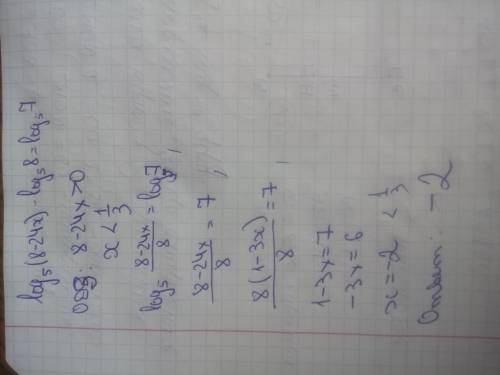 log₅(8-24x) - log₅8 = log₅7
ОДЗ: 8-24x>0
x < 1/3
log₅ (8-24x)/8 = log₅7,
(8-24x)/8 = 7,
8(1-3x)/8 = 7,
1-3x=7
-3x=6
x=-2 < 1/3
Ответ: -2